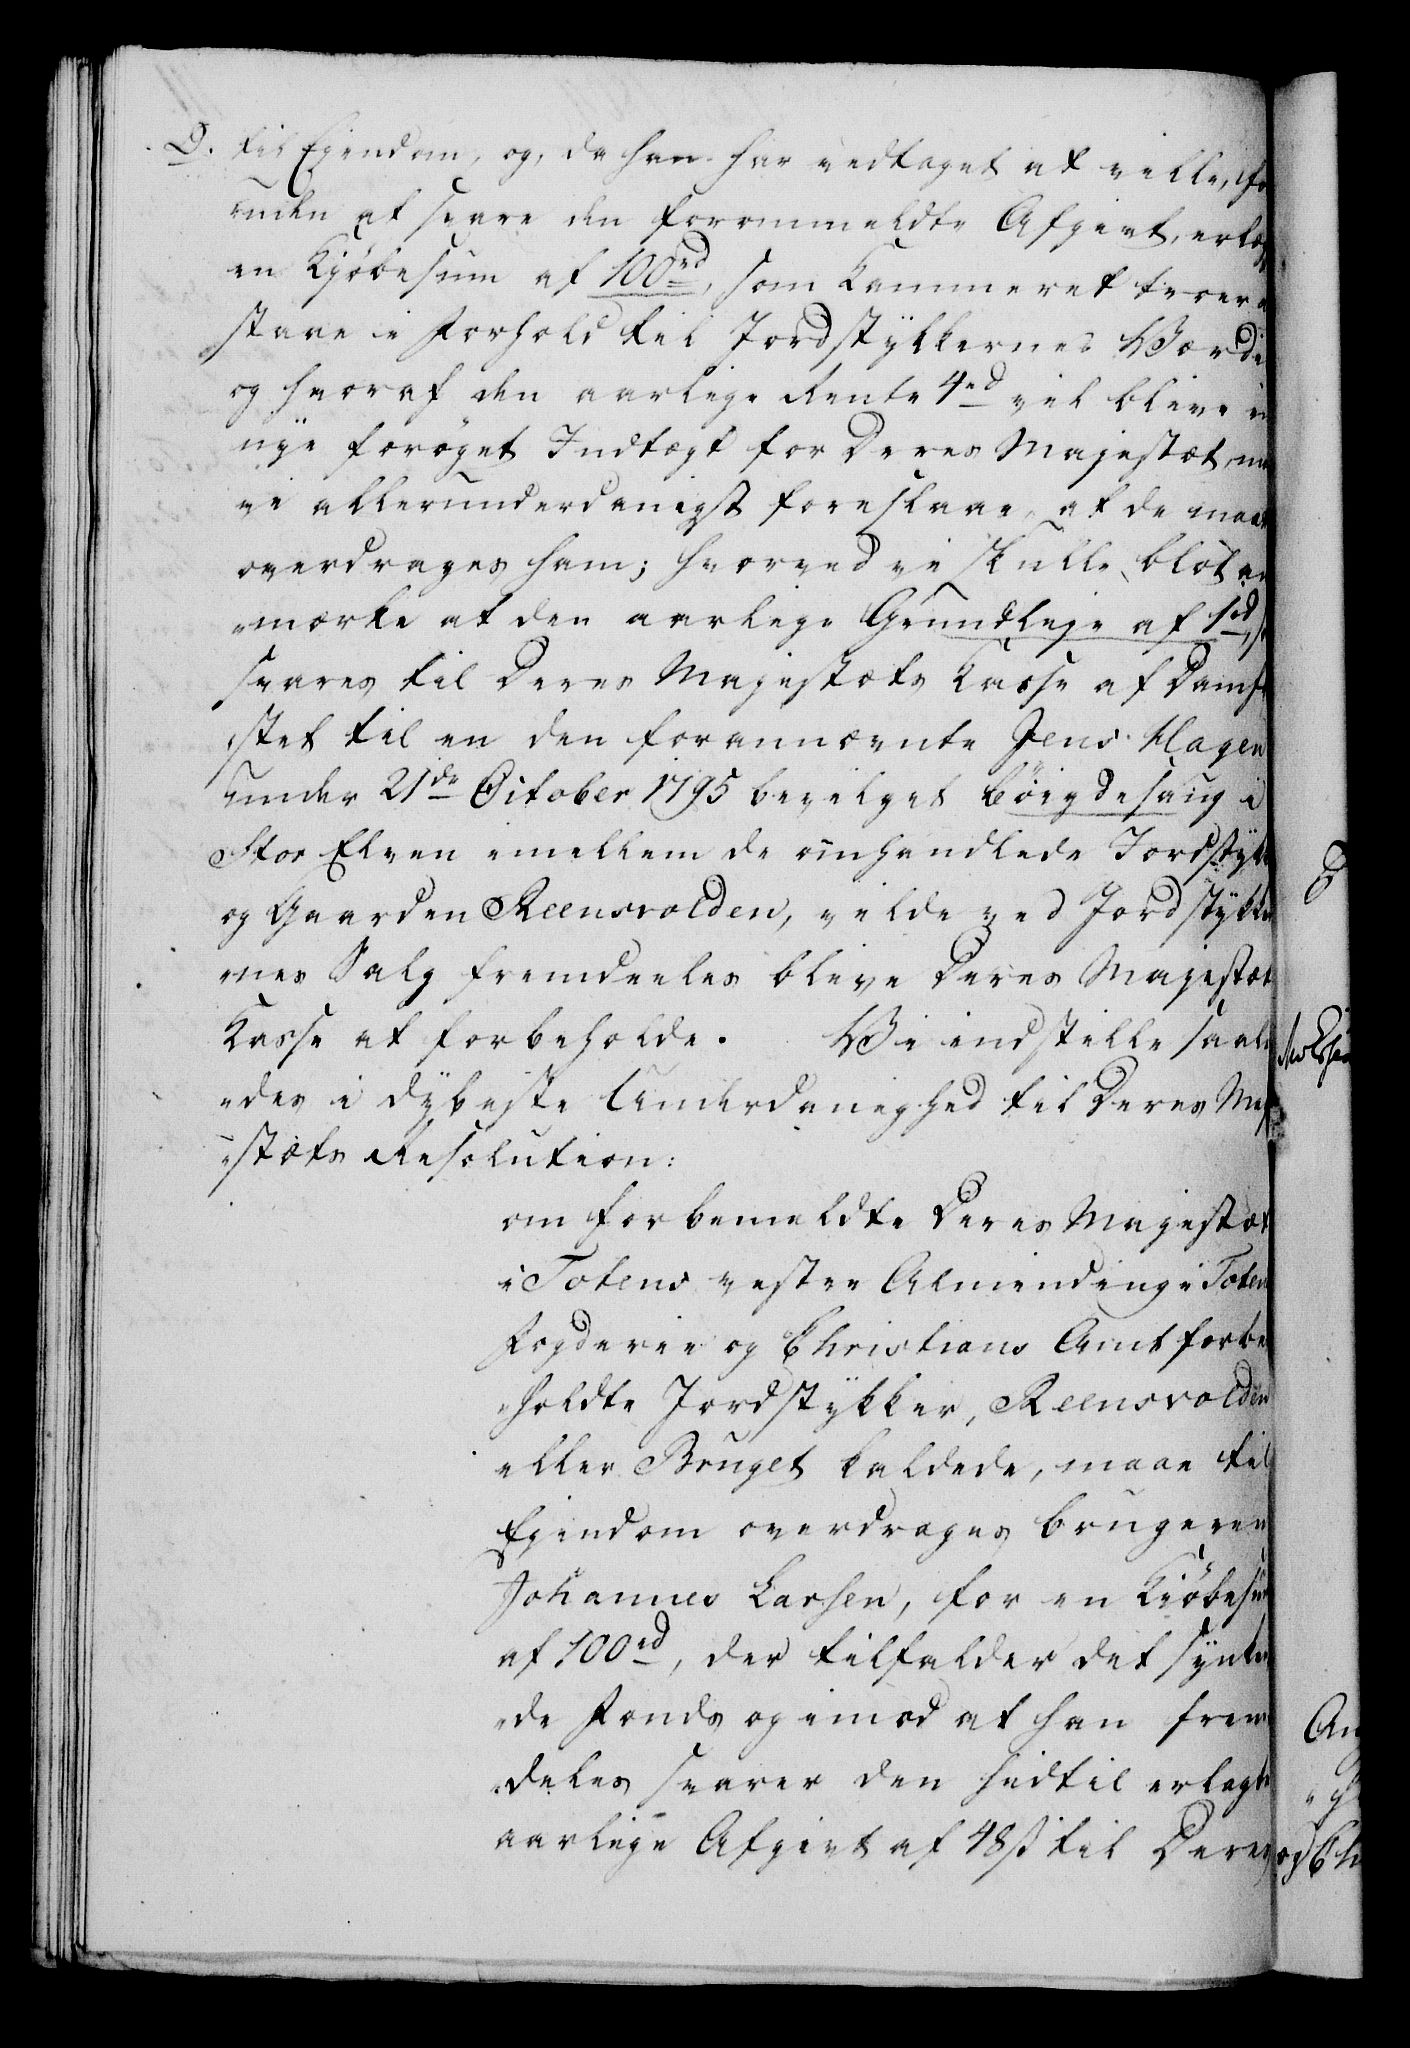 D. til Eiendom, og, da han har vedtaget at ville, fo
"uden at svare den forommeldte Afgivt, erlæg
en Kjøbesum af 100rd, som Kammeret troer a
staae i Forhold til Jordstykkernes Værdie
og hvoraf den aarlige Rente 4rd vil blive en
nye forøget Indtægt for Deres Majestæt, maa
vi allerunderdanigst foreslaae, at de maae
overdrages ham; hvorved vi skulle blot an
"mærke at den aarlige Grundleje af 1rd, s
svares til Deres Majestæts Kasse af Dam
"stet til en den forannævnte Jens Hagen
under 21de October 1795 bevilget Bøigdesaug i
Stor Elven imellem de omhandlede Jordstykk
og Gaarden Reensvolden, vilde ved Jordstykker
"nes Salg fremdeeles blive Deres Majestæts
Kasse at forbeholde. Vi indstille saale
"des i dybeste Underdanighed til Deres Maj
"stæts Resolution:
om forbemeldte Deres Majestæt
i Totens vestre Almending i Toten
Fogderie og Christians Amt forbe
"holdte Jordstykker, Reensvolden
eller Bruget kaldede, maae til
Eiendom overdrages brugeren
Johannes Larsen, for en Kiøbesum
af 100rd, der tilfalder det synken
"de Fonds og imod at han frem
"deles svarer den hidtil erlagte
aarlige Afgivt af 48 ß til Deres